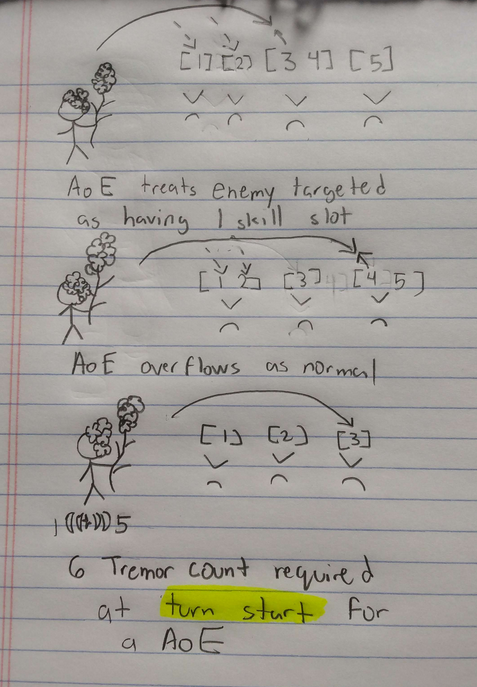 [1] [2] [3 4] [5]
AoE treats enemy targeted
as having 1 skill slot
[1 2] [3] [4 5]
AoE overflows as normal
[1] [2] [3]
1 5
6 Tremor count required
at turn start for
a AoE